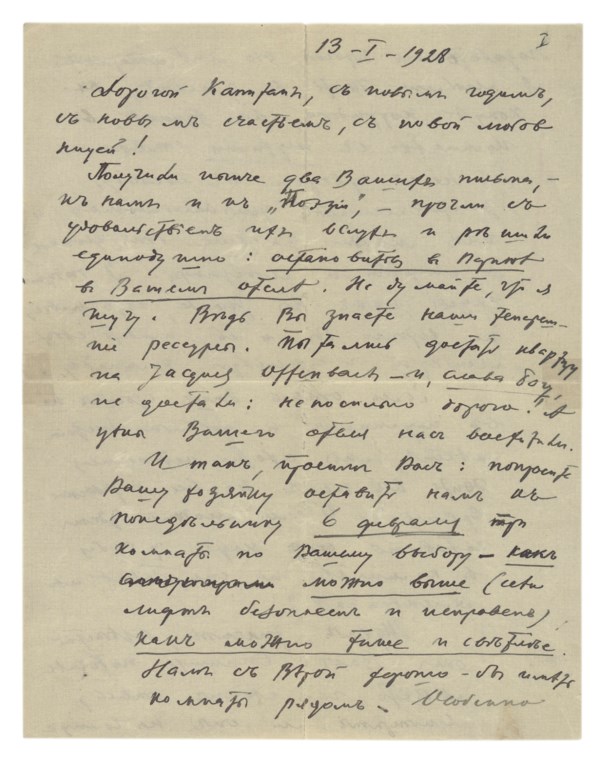 I
13 – I – 1928
Дорогой Капитан, съ новымъ годомъ,
съ новымъ счастьемъ, съ новой любов
ницей!
Получили нынче два Вашихъ письма, –
къ намъ и къ „Поэту“, – прочли съ
удовольствіемъ ихъ вслухъ и рѣшили
единодушно: остановиться въ Парижѣ
въ Вашемъ отелѣ. Не думайте, что я
шучу. Вѣдь Вы знаете наши тепереш-
ніе ресурсы. Пытались достать квартиру
на Jacques Offenbach – и, слава богу,
не достали: непосильно дорого! А
цѣны Вашего отеля насъ восхитили.
Итакъ, просимъ Васъ: попросите
Вашу хозяйку оставить намъ къ
понедѣльнику 6 февраля три
комнаты по Вашему выбору – какъ
можно выше (если
лифтъ безопасенъ и исправенъ)
какъ можно тише и свѣтлѣе.
Намъ съ Вѣрой хорошо-бы имѣть
комнаты рядомъ. Особенно